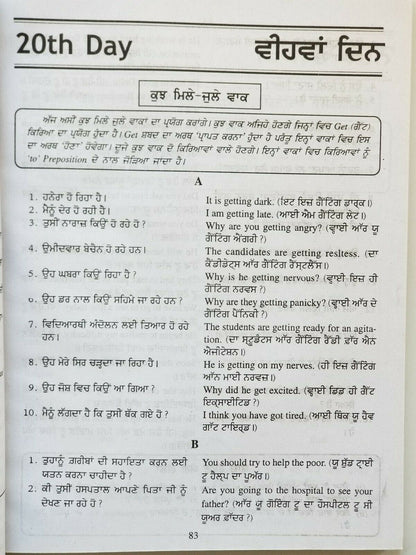 20th Day ਵੀਹਵਾਂ ਦਿਨ
ਕੁਝ ਮਿਲੇ-ਜੁਲੇ ਵਾਕ
ਅੱਜ ਅਸੀਂ ਕੁਝ ਮਿਲੇ ਜੁਲੇ ਵਾਕਾਂ ਦਾ ਪ੍ਰਯੋਗ ਕਰਾਂਗੇ। ਕੁਝ ਵਾਕ ਅਜਿਹੇ ਹੋਣਗੇ ਜਿਨ੍ਹਾਂ ਵਿਚ Get (ਗੈੱਟ)
ਕਿਰਿਆ ਦਾ ਪ੍ਰਯੋਗ ਹੁੰਦਾ ਹੈ। Get ਸ਼ਬਦ ਦਾ ਅਰਥ 'ਪ੍ਰਾਪਤ ਕਰਨਾ' ਹੁੰਦਾ ਹੈ ਪਰੰਤੂ ਇਨ੍ਹਾਂ ਵਾਕਾਂ ਵਿਚ ਇਸ
ਦਾ ਅਰਥ 'ਹੋਣਾ' ਹੋਵੇਗਾ। ਦੂਜੇ ਕੁਝ ਵਾਕ ਦੋ ਕਿਰਿਆਵਾਂ ਵਾਲੇ ਹੋਣਗੇ। ਇਨ੍ਹਾਂ ਵਾਕਾਂ ਵਿਚ ਕਿਰਿਆਵਾਂ ਨੂੰ
'to' Preposition ਦੇ ਨਾਲ ਜੋੜਿਆ ਜਾਂਦਾ ਹੈ।
A
1. ਹਨੇਰਾ ਹੋ ਰਿਹਾ ਹੈ। It is getting dark. (ਇਟ ਇਜ਼ ਗੈਟਿੰਗ ਡਾਰਕ।)
2. ਮੈਨੂੰ ਦੇਰ ਹੋ ਰਹੀ ਹੈ। I am getting late. (ਆਈ ਐਮ ਗੈਟਿੰਗ ਲੇਟ।)
3. ਤੁਸੀਂ ਨਾਰਾਜ਼ ਕਿਉਂ ਹੋ ਰਹੇ ਹੋ ? Why are you getting angry? (ਵ੍ਹਾਈ ਆੱਰ ਯੂ
ਗੈਟਿੰਗ ਐਂਗਰੀ ?)
4. ਉਮੀਦਵਾਰ ਬੇਚੈਨ ਹੋ ਰਹੇ ਹਨ। The candidates are getting resltess. (ਦਾ
ਕੈਂਡੀਡੇਟ੍ਸ ਆੱਰ ਗੈਟਿੰਗ ਰੈਸਟਲੈੱਸ।)
5. ਉਹ ਘਬਰਾ ਕਿਉਂ ਰਿਹਾ ਹੈ ? Why is he getting nervous? (ਵ੍ਹਾਈ ਇਜ਼ ਹੀ
ਗੈਟਿੰਗ ਨਰਵਸ ?)
6. ਉਹ ਡਰ ਨਾਲ ਕਿਉਂ ਸਹਿਮੇ ਜਾ ਰਹੇ ਹਨ ? Why are they getting panicky? (ਵ੍ਹਾਈ ਆੱਰ ਦੇ
ਗੈਟਿੰਗ ਪੈਨਿਕੀ ?)
7. ਵਿਦਿਆਰਥੀ ਅੰਦੋਲਨ ਲਈ ਤਿਆਰ ਹੋ ਰਹੇ The students are getting ready for an agita-
ਹਨ। tion. (ਦਾ ਸਟੂਡੈਂਟਸ ਆੱਰ ਗੈਟਿੰਗ ਰੈਡੀ ਫਾੱਰ ਐਨ
ਐਜੀਟੇਸ਼ਨ।)
8. ਉਹ ਮੇਰੇ ਸਿਰ ਚੜ੍ਹਦਾ ਜਾ ਰਿਹਾ ਹੈ। He is getting on my nerves. (ਹੀ ਇਜ਼ ਗੈਟਿੰਗ
ਆੱਨ ਮਾਈ ਨਰਵਜ਼।)
9. ਉਹ ਜੋਸ਼ ਵਿਚ ਕਿਉਂ ਆ ਗਿਆ ? Why did he get excited. (ਵ੍ਹਾਈ ਡਿਡ ਹੀ ਗੈੱਟ
ਇਕਸਾਈਟਿਡ ?)
10. ਮੈਨੂੰ ਲੱਗਦਾ ਹੈ ਕਿ ਤੁਸੀਂ ਥੱਕ ਗਏ ਹੋ ? I think you have got tired. (ਆਈ ਥਿੰਕ ਯੂ ਹੈਵ
ਗਾੱਟ ਟਾਇਰ੍ਡ।)
B
1. ਤੁਹਾਨੂੰ ਗ਼ਰੀਬਾਂ ਦੀ ਸਹਾਇਤਾ ਕਰਨ ਲਈ You should try to help the poor. (ਯੂ ਸ਼ੁੱਡ ਟ੍ਰਾਈ
ਯਤਨ ਕਰਨਾ ਚਾਹੀਦਾ ਹੈ ? ਟੂ ਹੈਲ੍ਪ ਦਾ ਪੂਅੱਰ।)
2. ਕੀ ਤੁਸੀਂ ਹਸਪਤਾਲ ਆਪਣੇ ਪਿਤਾ ਜੀ ਨੂੰ Are you going to the hospital to see your
ਦੇਖਣ ਜਾ ਰਹੇ ਹੋ ? father? (ਆੱਰ ਯੂ ਗੋਇੰਗ ਟੂ ਦਾ ਹੋਸਪੀਟਲ ਟੂ ਸੀ
ਯੂਅਰ ਫ਼ਾੱਦਰ ?)
83